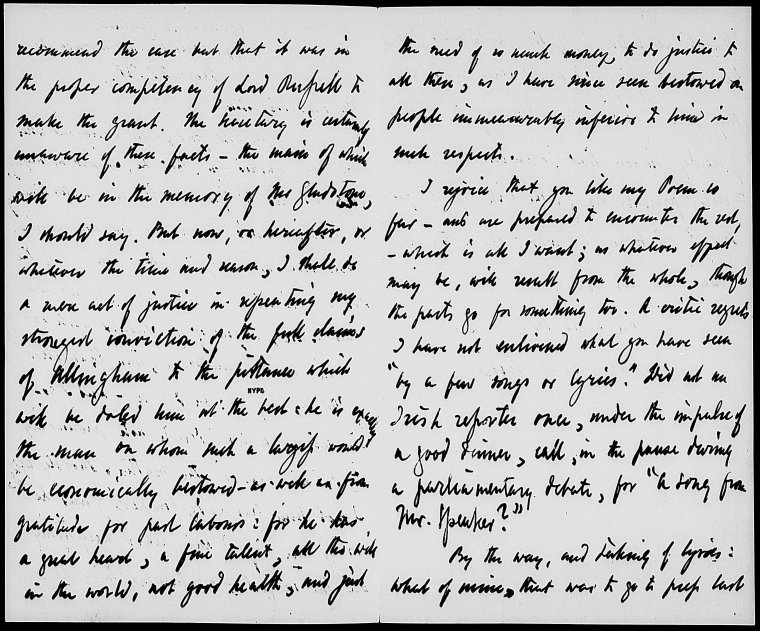 recommend the case but that it was in
the proper competency of Lord Russell to
make the grant. The Secretary is certainly
unaware of these facts – the main of which
will be in the memory of Mr Gladstone,
I should say. But now, or hereafter, or
whatever the time and season, I shall do
a mere act of justice in repeating my
strongest conviction of the full claims
of Allingham to the pittance which
will be doled him at the best: he is exactly
the man on whom such a largess would
be economically bestowed – as well as from
gratitude for past labours: for he has
a great heart, a fine talent, all the will
in the world, not good health, and just
NYPL
the need of so much money, to do justice to
all these, as I have since seen bestowed on
people immeasurably inferior to him in
such respects.
I rejoice that you like my Poem so
far – and are prepared to encounter the rest,
– which is all I want; as whatever effect
may be, will result from the whole, though
the parts go for something too. A critic regrets
I have not enlivened what you have seen
"by a few songs or lyrics." Did not an
Irish reporter once, under the impulse of
a good dinner, call, in the pause during
a parliamentary debate, for "A song from
Mr. Speaker?"
By the way, and talking of lyrics:
what of mine, that was to go to press last